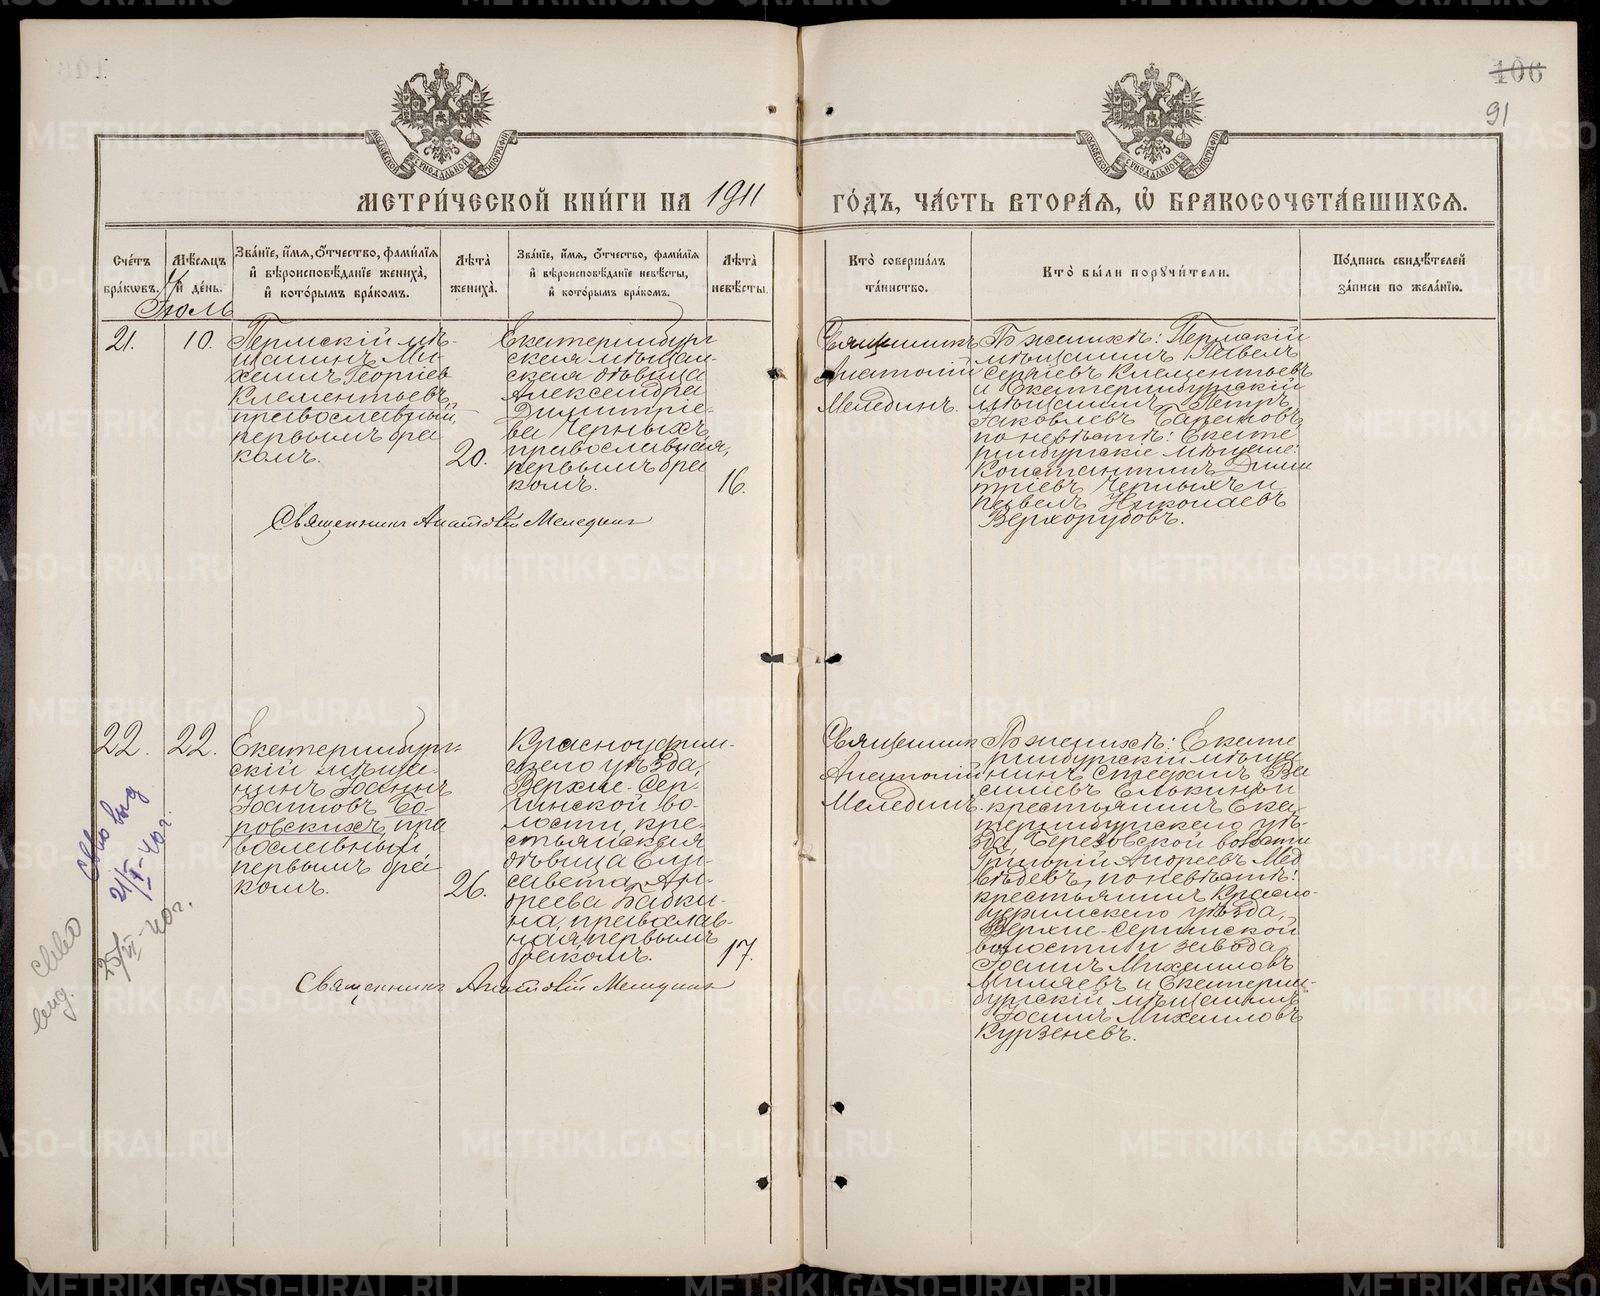 106
91
МЕТРИ́ЧЕСКОЙ КНИ́ГИ НА 1911 ГО́ДЪ, ЧА́СТЬ ВТОРА́Я, Ѡ БРАКОСОЧЕТА́ВШИХСЯ.
Сче́тъ бра́ковъ.
Мѣ́сяцъ и де́нь.
Зва́нїе, и́мя, о́тчество, фами́лїя и вѣроисповѣ́данїе жениха̀, и кото́рымъ бра́комъ.
Лѣ́та жениха̀.
Зва́нїе, и́мя, о́тчество, фами́лїя и вѣроисповѣ́данїе невѣ́сты, и кото́рымъ бра́комъ.
Лѣ́та невѣ́сты.
Кто̀ соверша́лъ та́инство.
Кто̀ бы́ли поручи́тели.
По́дпись свидѣ́телей за́писи по жела́нїю.
Іюль
21.
10.
Пермскій мѣ-
щанинъ Ми-
хаилъ Георгіев
Клементьевъ,
православный,
первымъ бра
комъ.
20.
Екатеринбург
ская мѣщан-
ская дѣвица
Александра
Димитріе-
ва Черныхъ,
православная,
первымъ бра
комъ.
16.
Священникъ
Анатолій
Мелединъ.
По женихѣ: Пермскій
мѣщанинъ Павелъ
Сергіевъ Клементьевъ
и Екатеринбургскій
мѣщанинъ Петръ
Іаковлевъ
по невѣстѣ: Екате
ринбургскіе мѣщане:
Константинъ Дими
тріевъ Черныхъ и
Павелъ Николаевъ
Верхорубовъ.
Священникъ Анатолій Меледин
22.
22.
Екатеринбург-
скій мѣща-
нинъ Іоаннъ
Іоанновъ Бо-
ровскихъ, пра
вославный,
первымъ бра
комъ.
26.
Красноуфим-
скаго уѣзда,
Верхне-Сер-
гинской во-
лости, кре-
стьянская
дѣвица Ели-
савета Ан-
дреева Бабки-
на, православ-
ная, первымъ
бракомъ.
17.
Священникъ
Анатолій
Меледин.
По женихѣ: Екате
ринбургскій мѣща
нинъ Стефанъ Ва
сильевъ Елькинъ и
крестьянинъ Ека
теринбургскаго уѣ-
зда, Березовской волости
Григорій Андреевъ Мед
вѣдевъ, по невѣстѣ:
крестьянинъ Красно-
уфимскаго уѣзда,
Верхне-Сергинской
волости и завода
Іоаннъ Михаиловъ
Миляевъ и Екатерин-
бургскій мѣщанинъ
Іоаннъ Михаиловъ
Курзеневъ.
Священникъ Анатолій Меледин
Св-во выд
21/V-40 г.
св-во
выд.
25/VI-40 г.
METRIKI.GASO-URAL.RU